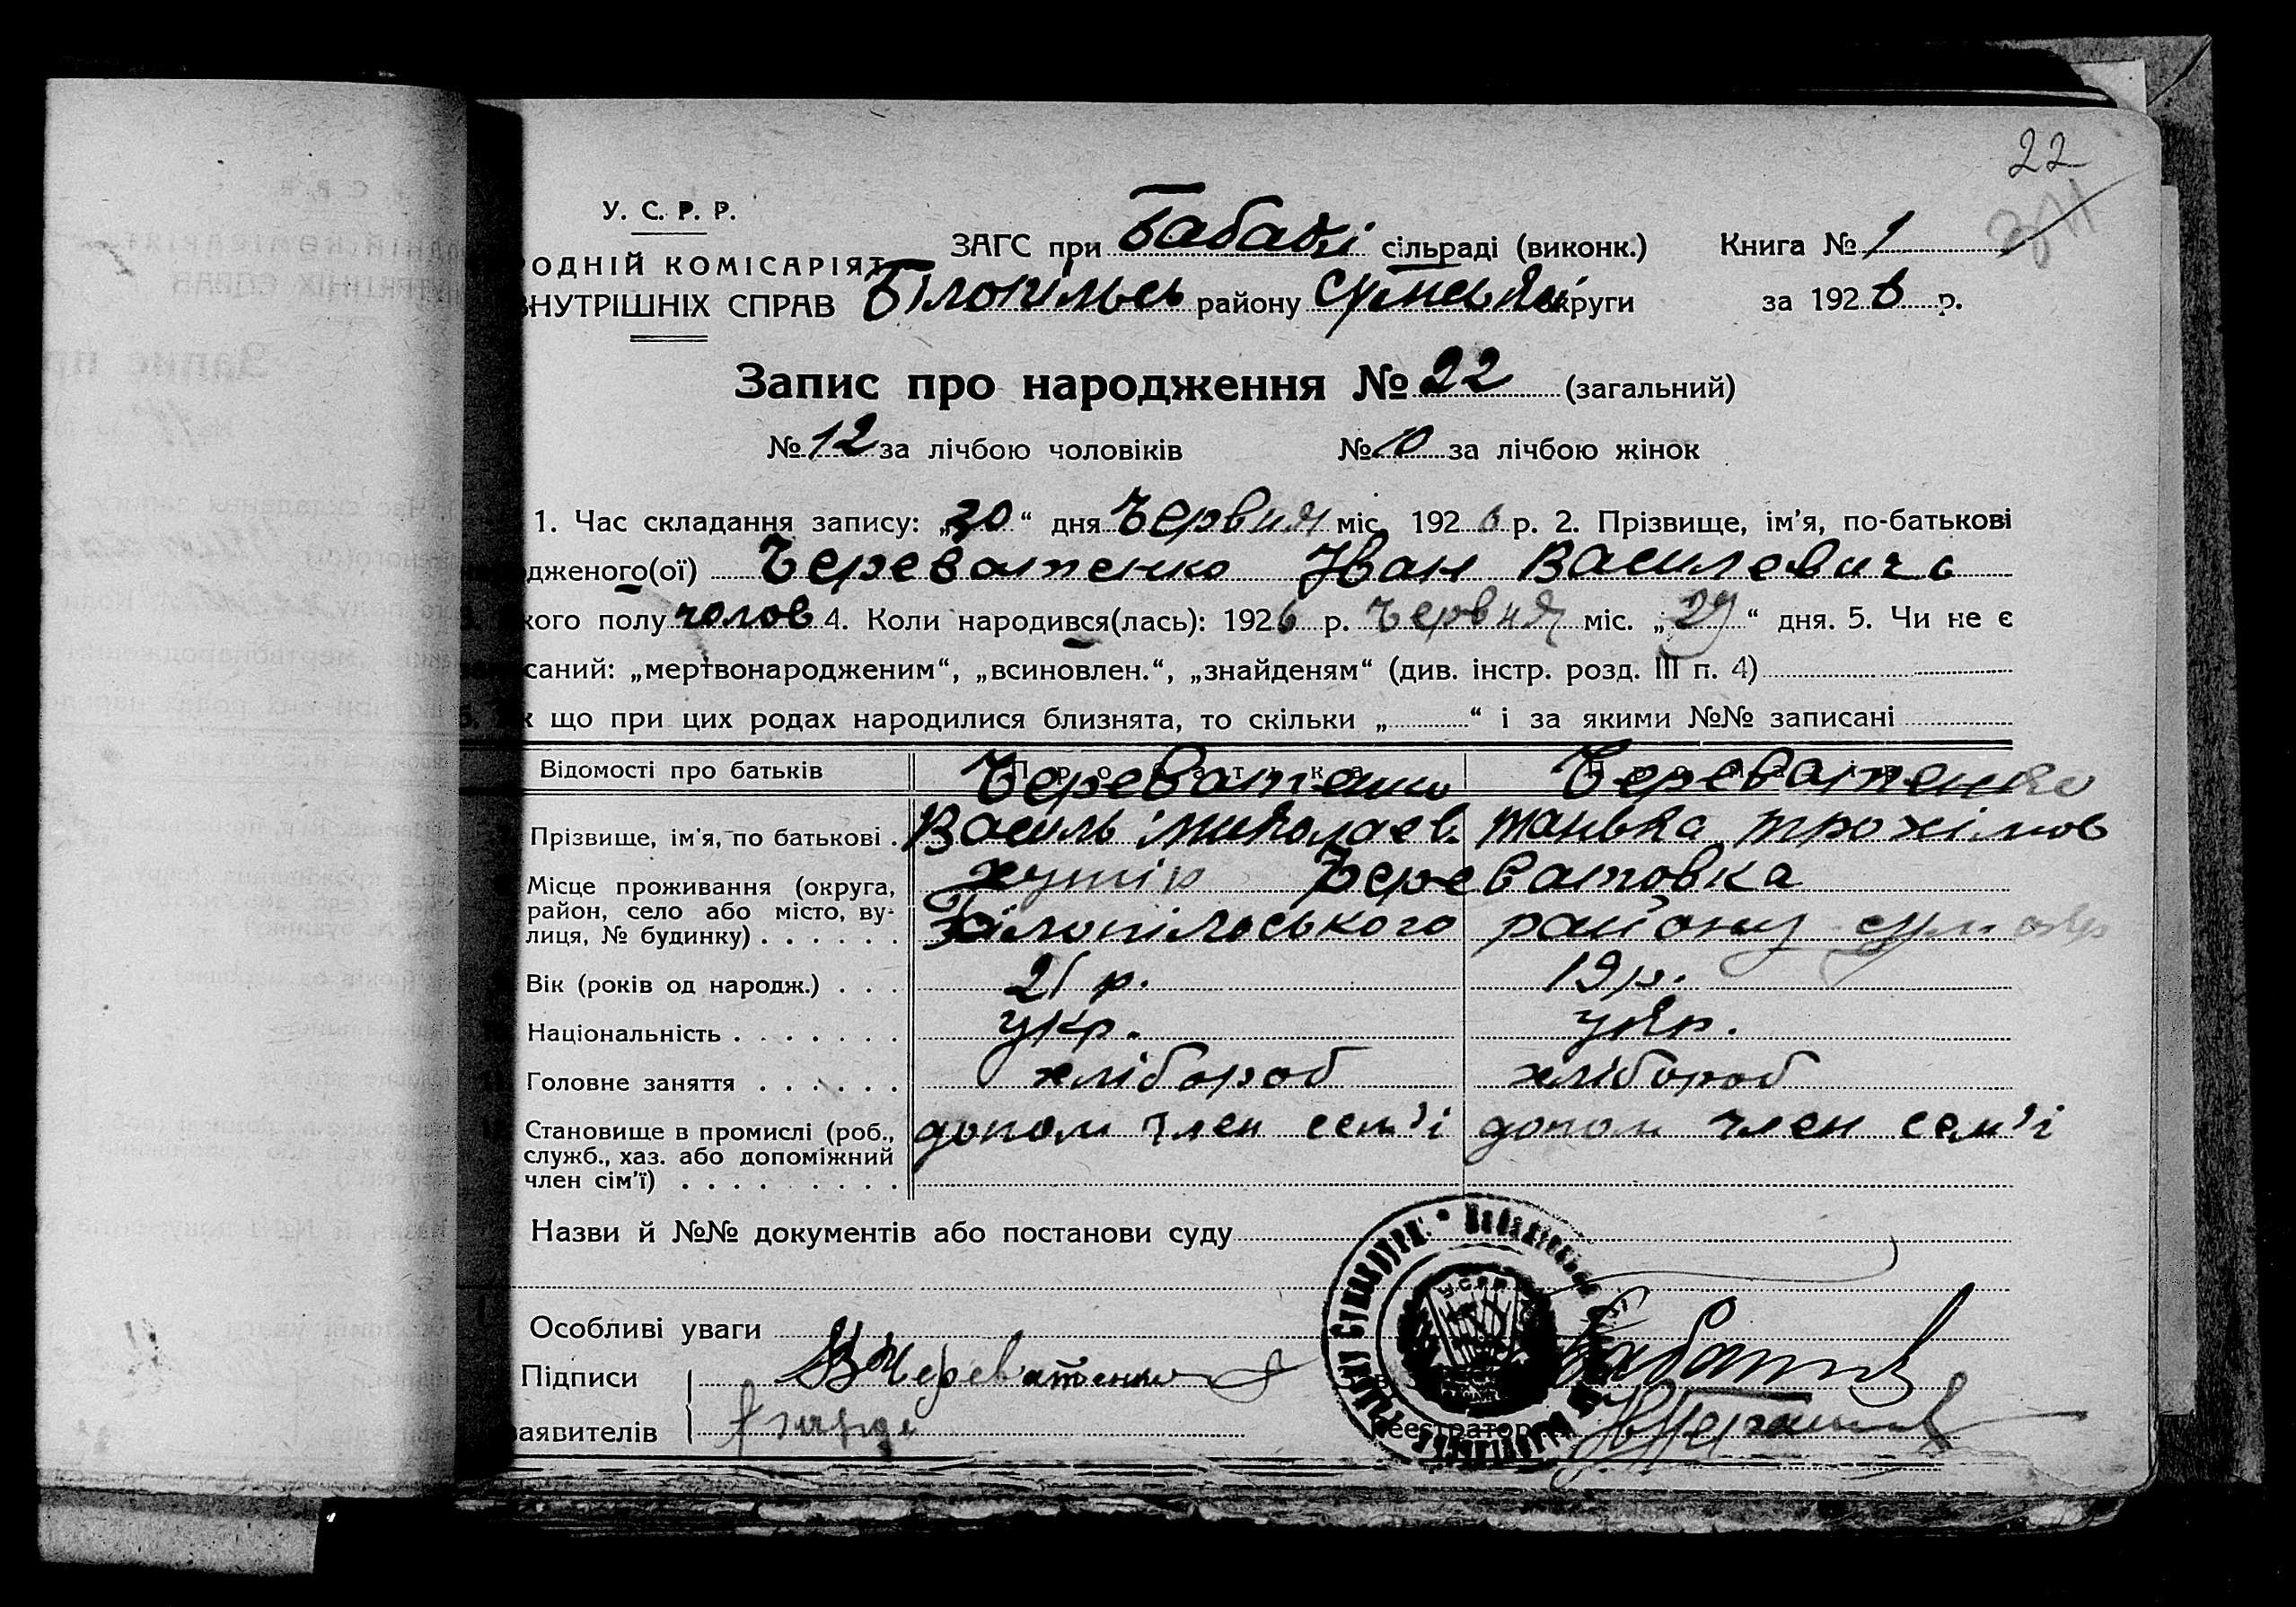 22
У. С. Р. Р.
ЗАГС при сільраді (виконк.) Книга № 1
РОДНІЙ КОМІСАРІЯТ
ВНУТРІШНІХ СПРАВ Білопільсь району Сумської округи за 1926 р.
Запис про народження № 22 (загальний)
№ 12 за лічбою чоловіків № 10 за лічбою жінок
1. Час складання запису: „30“ дня Червня міс. 1926 р. 2. Прізвище, ім'я, по-батькові
дженого(ої) Череватенко Іван Василевичь
кого полу чолов 4. Коли народився(лась): 1926 р. Червня міс. „29“ дня. 5. Чи не є
саний: „мертвонародженим“, „всиновлен.“, „знайденям“ (див. інстр. розд. III п. 4)
що при цих родах народилися близнята, то скільки „ “ і за якими №№ записані
Відомості про батьків Череватенко Череватенко
Прізвище, ім'я, по батькові . Василь Миколаєв. Танька Трохімов
Місце проживання (округа, хутір Череватовка
район, село або місто, ву-
лиця, № будинку) . . . . . . Білопільського району Сум окр
Вік (років од народж.) . . . 21 р. 19 р.
Національність . . . . . . . укр. укр.
Головне заняття . . . . . . хлібороб хлібороб
Становище в промислі (роб., допом член сем'ї допом член сем'ї
служб., хаз. або допоміжний
член сім'ї) . . . . . . . . .
Назви й №№ документів або постанови суду
У.С.Р.Р.
Особливі уваги
Підписи В Череватенко
заявителів
Реєстратор